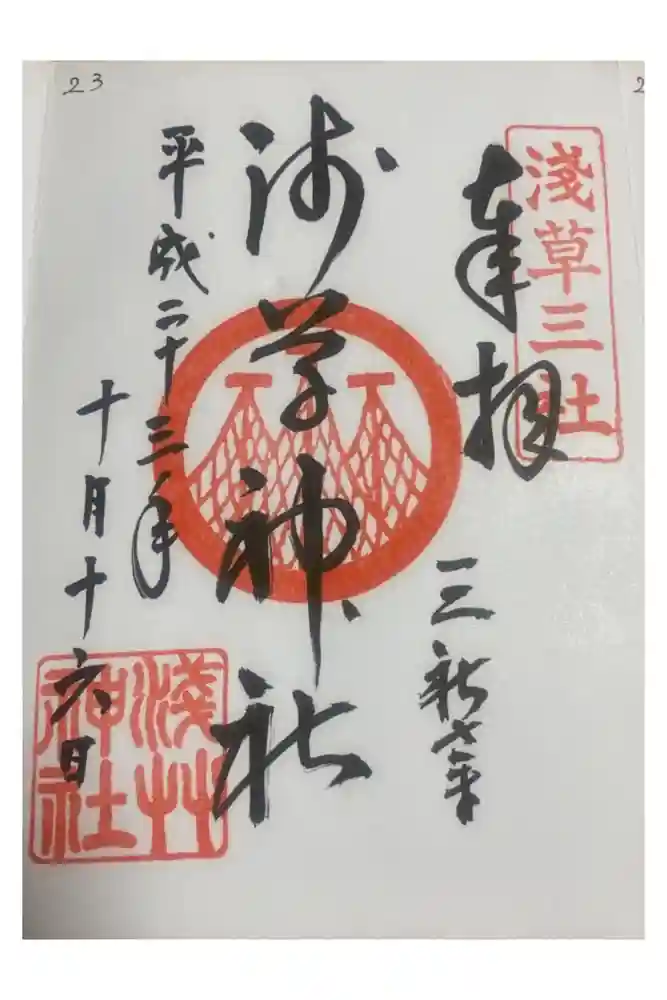 23
2
淺草三社
奉拝
三社
浅草神社
平成二十三年
十月十六日
淺艸
神社